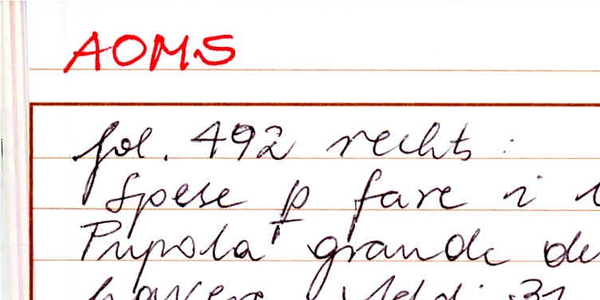 AOMS
fol. 492 rechts :
Spese p fare i
Pupola grande de